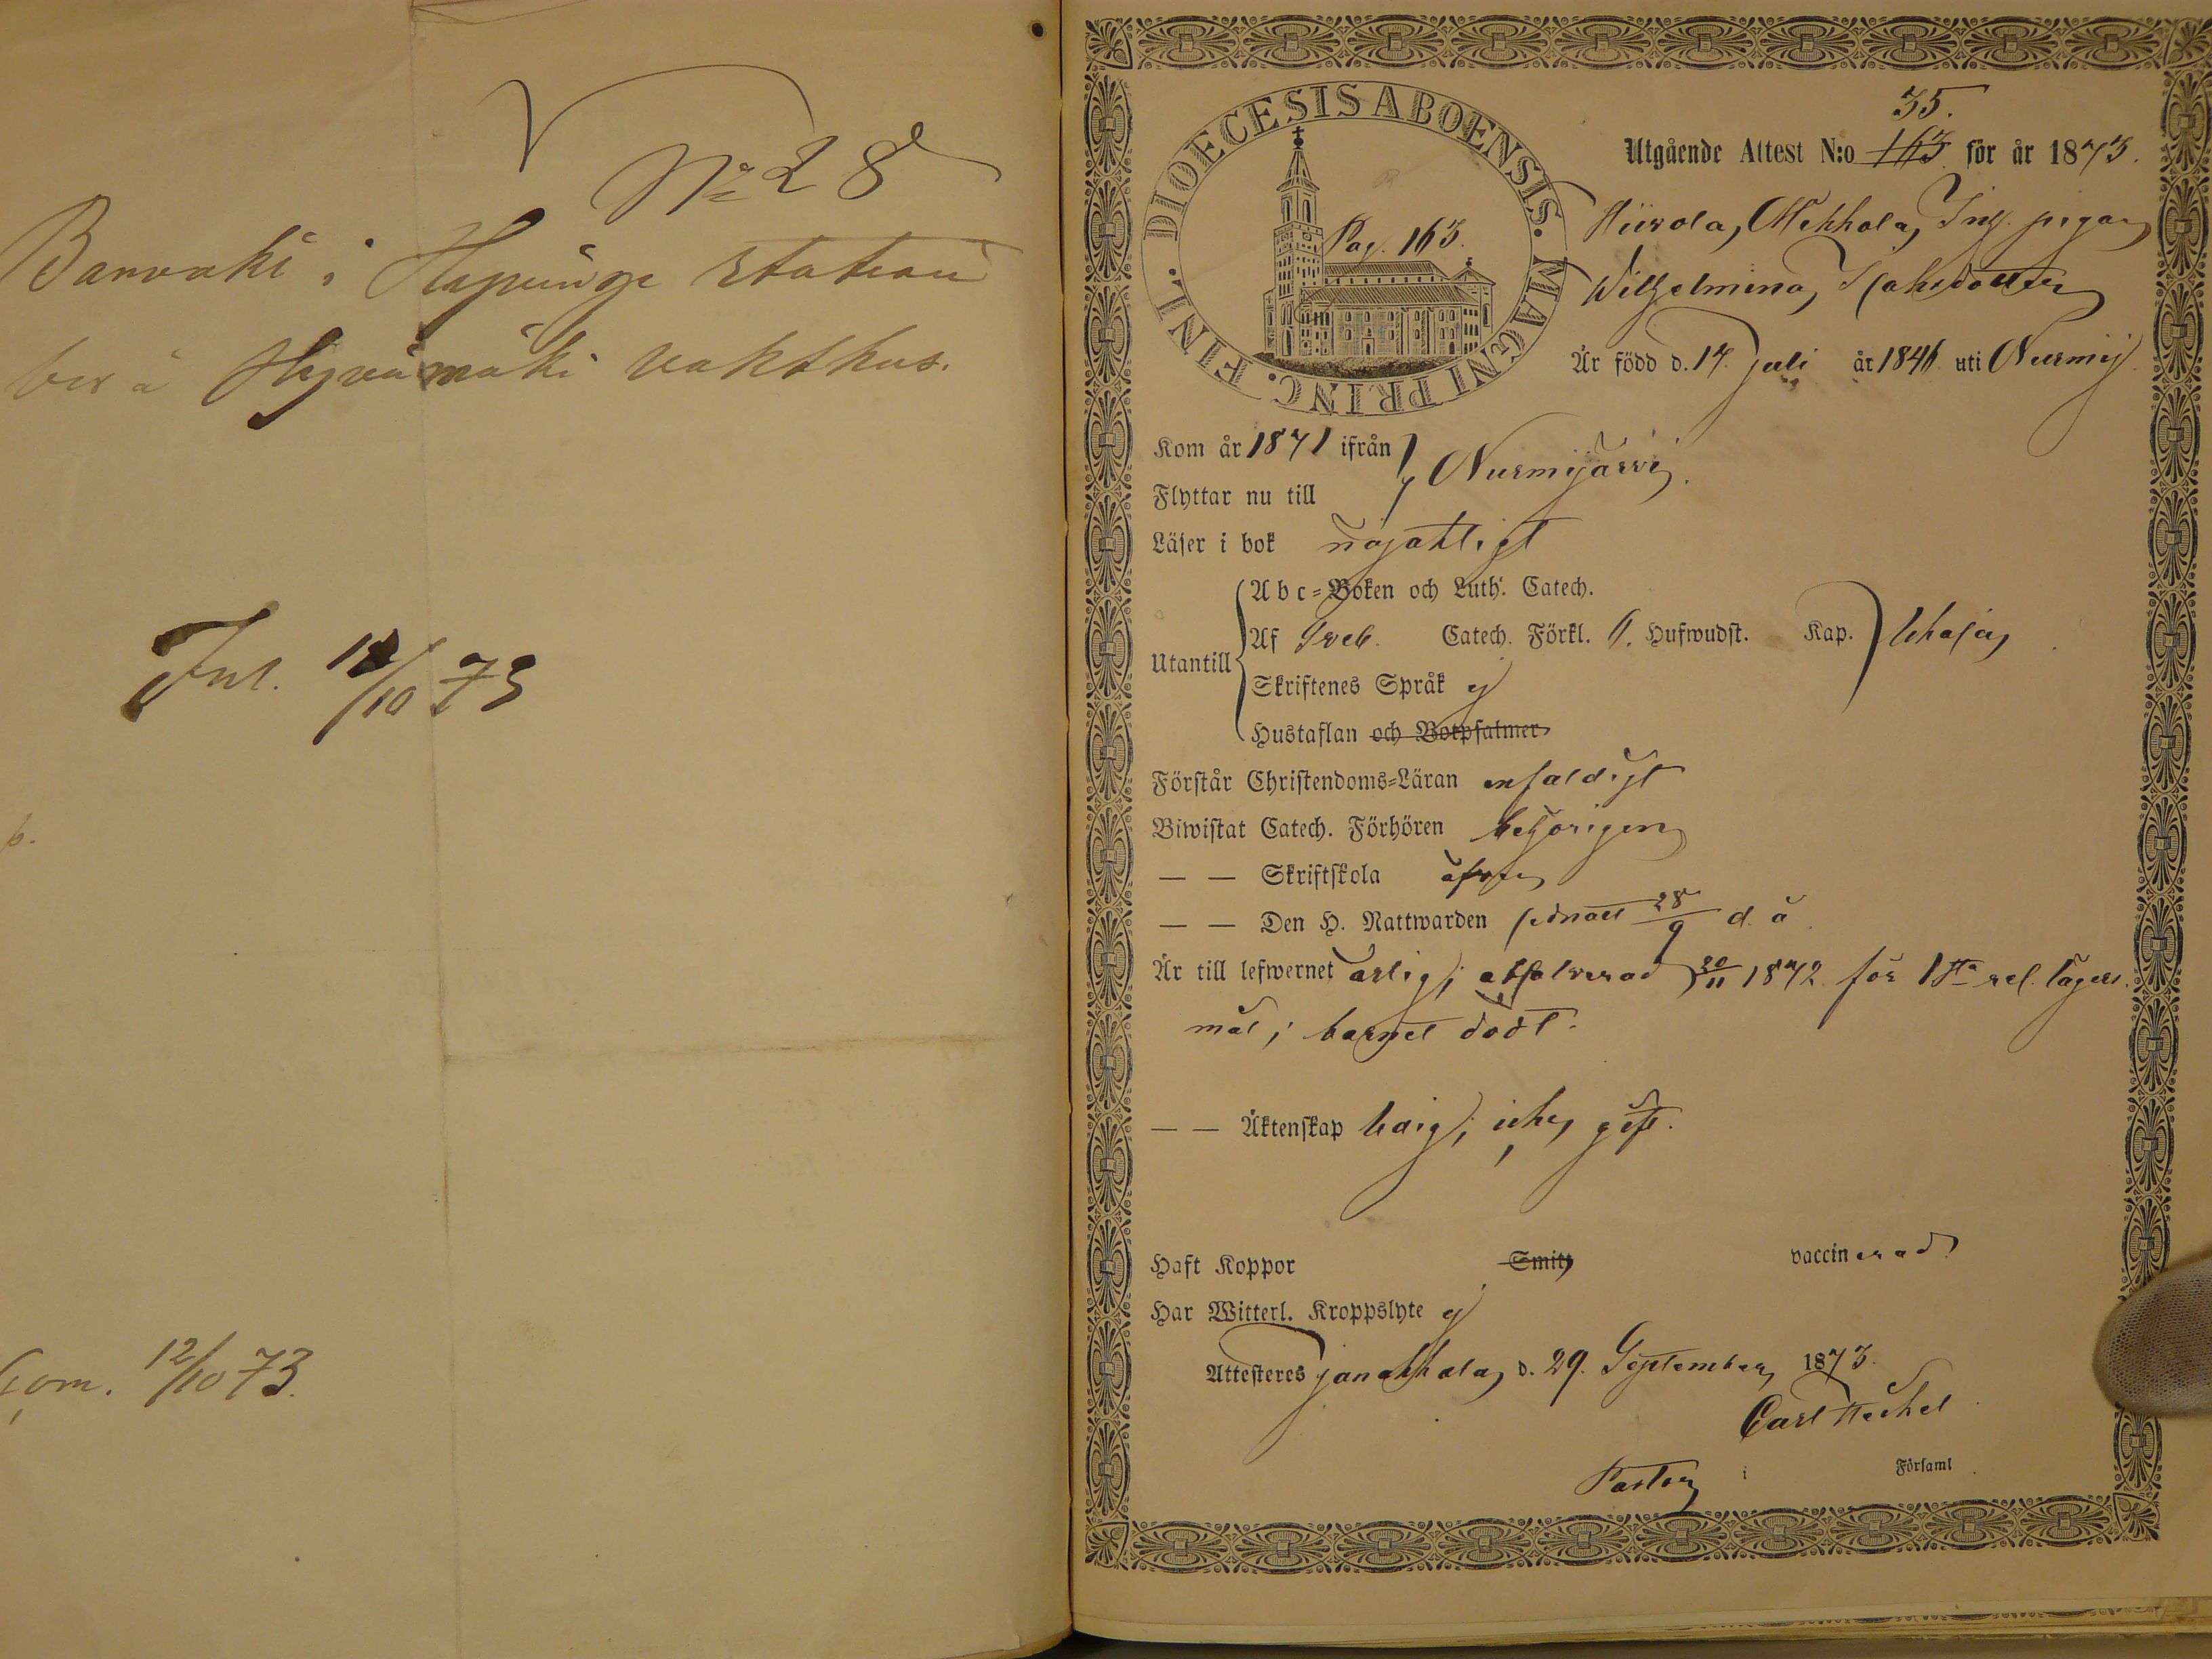 No 28
Banvakt i Hyvinge station
bor å Hyvinmäki vakthus.
Inl. 12/10 73
b.
Com. 12/10 73.
DIOECESIS ABOENSIS. MAGNI PRINC. FINL.
Pag. 163.
35.
Utgående Attest N:o 163 för år 1873.
Hiivola, Mekkola, Inh. pigan
Wilhelmina Isaksdotter
Är född d. 17 Juli år 1846 uti Nurmij.
Kom år 1871 ifrån
Nurmijärvi.
Flyttar nu till
Läser i bok nöjaktligt
Abc-Boken och Luth. Catech.
Utantill
Af Sveb. Catech. Förkl. Hufwudst. Kap.
Skriftenes Språk ej
Hustaflan och Botpsalmer
Förstår Christendoms-Läran enfaldigt
Biwistat Catech. Förhören behörigen
— — Skriftskola äfven
— — Den H. Nattwarden sednast 28/9 d. å
Är till lefwernet ärlig; absolverad 20/11 1872 för 1sta rel. lägers-
mål; barnet dödt.
— — Äktenskap ledig; icke gift.
Haft Koppor Smitt vaccinerad
Har Witterl. Kroppslyte ej
Attesteres Janakkala d. 29. September 1873.
Carl Heckel
Pastor i Församl